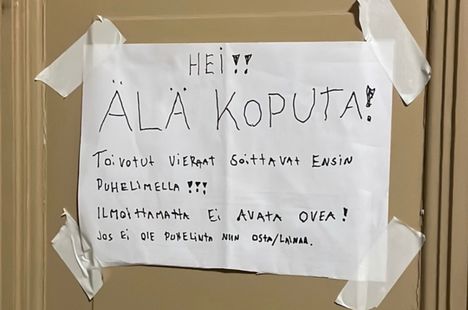 HEI!!
ÄLÄ KOPUTA!
TOIVOTUT VIERAAT SOITTAVAT ENSIN
PUHELIMELLA!!!
ILMOITTAMATTA EI AVATA OVEA!
JOS EI OLE PUHELINTA NIIN OSTA/LAINAA.